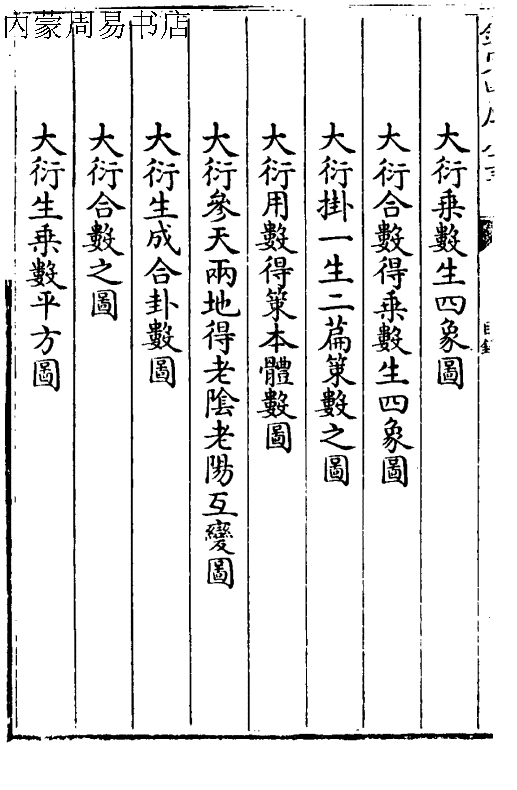 内蒙周易书店
大衍乗數生四象圖
大衍合數得乗數生四象圖
大衍掛一生二篇策數之圖
大衍用數得策本體數圖
大衍參天兩地得老陰老陽互變圖
大衍生成合卦數圖
大衍合數之圖
大衍生乗數平方圖
目錄